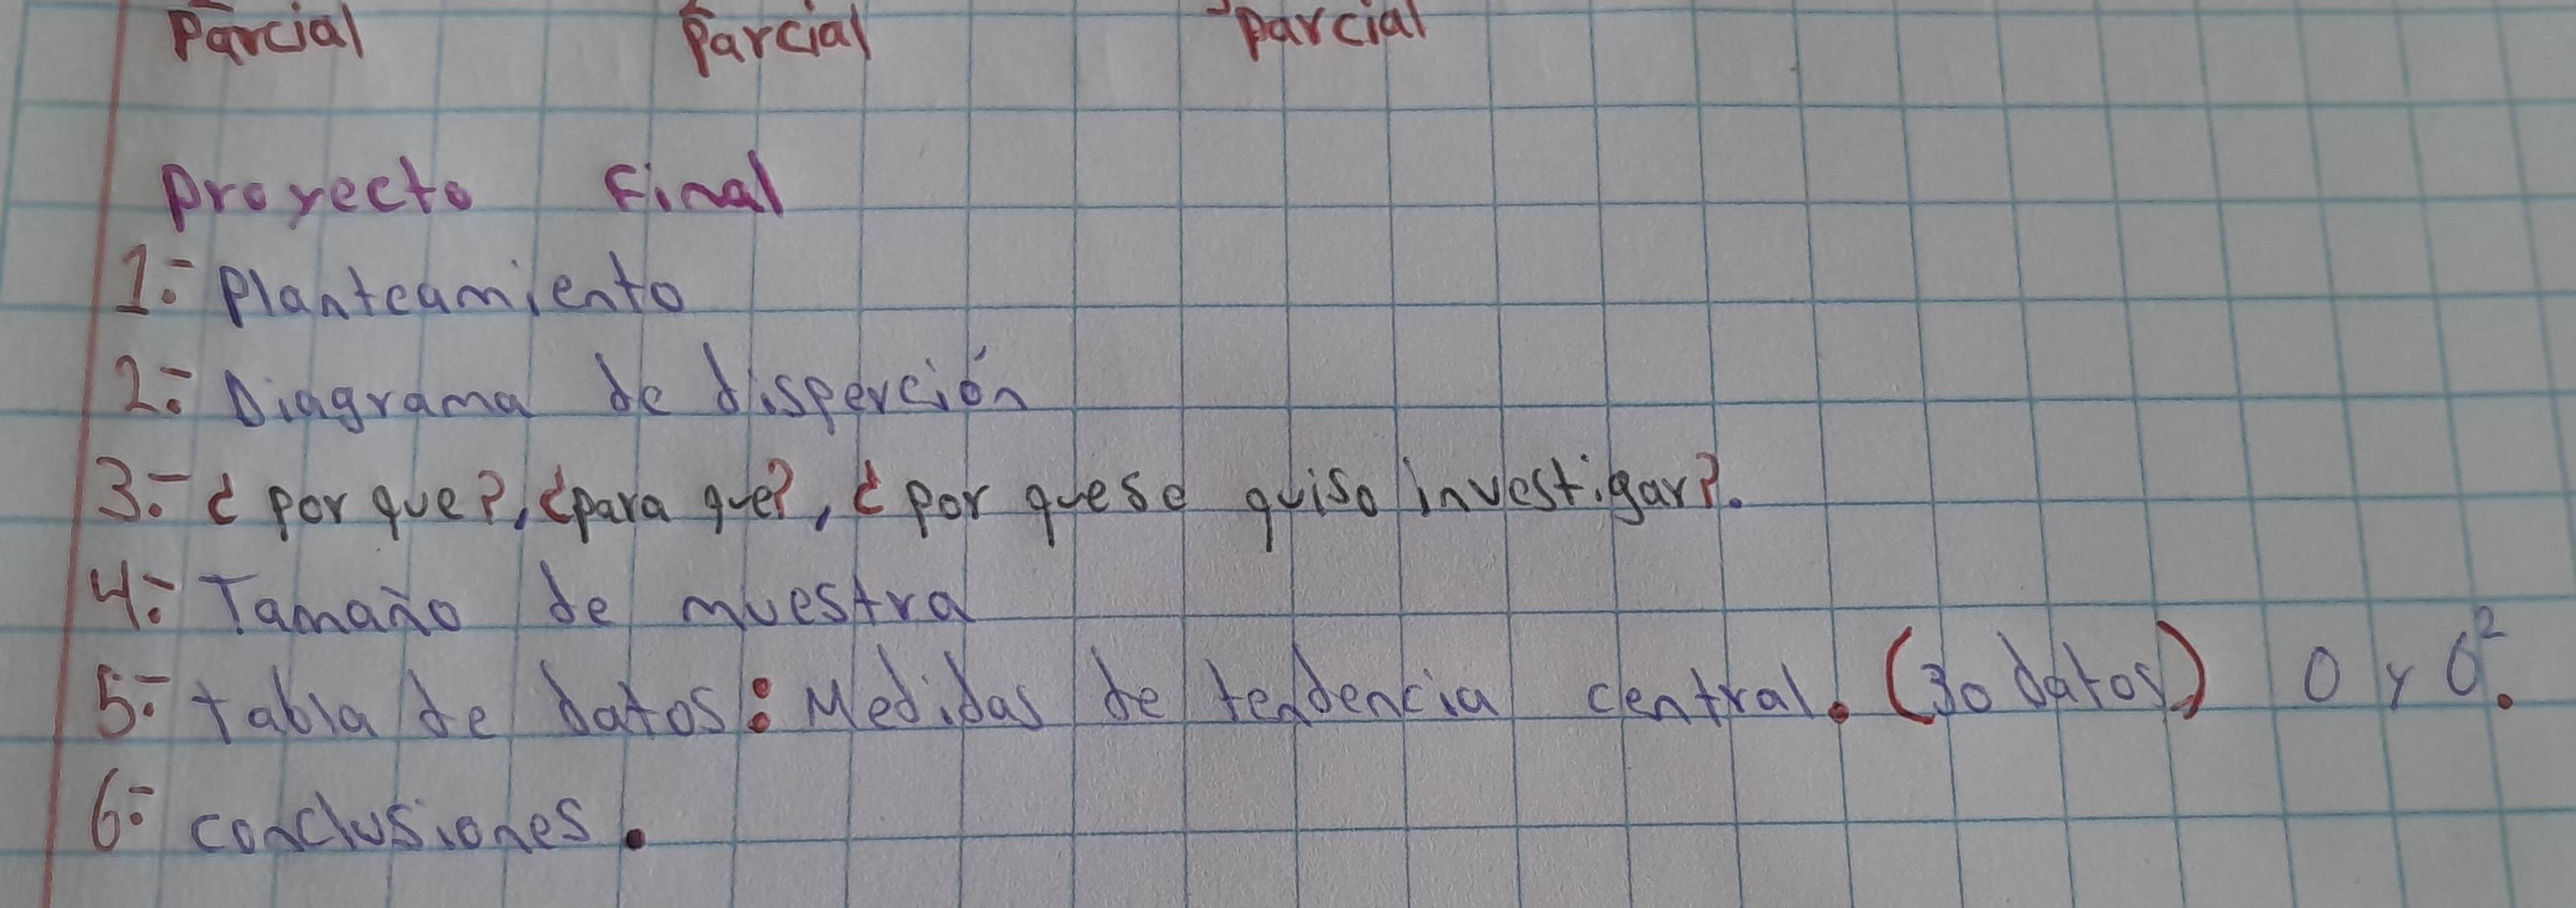 Parcial Parcial Parcial
Proyecto Final
1.- Planteamiento
2.- Diagrama de disperción
3.- ¿por que?, ¿para que?, ¿por que se quiso investigar?.
4.- Tamaño de muestra
5.- tabla de datos: Medidas de tendencia central. (30 datos) σ y σ².
6.- conclusiones.